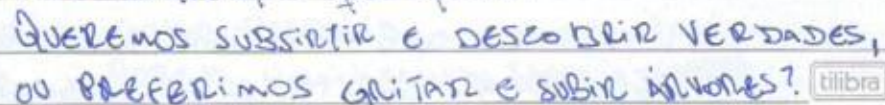 QUEREMOS SUBSISTIR E DESCOBRIR VERDADES,
OU PREFERIMOS GRITAR E SUBIR ÁRVORES? tilibra